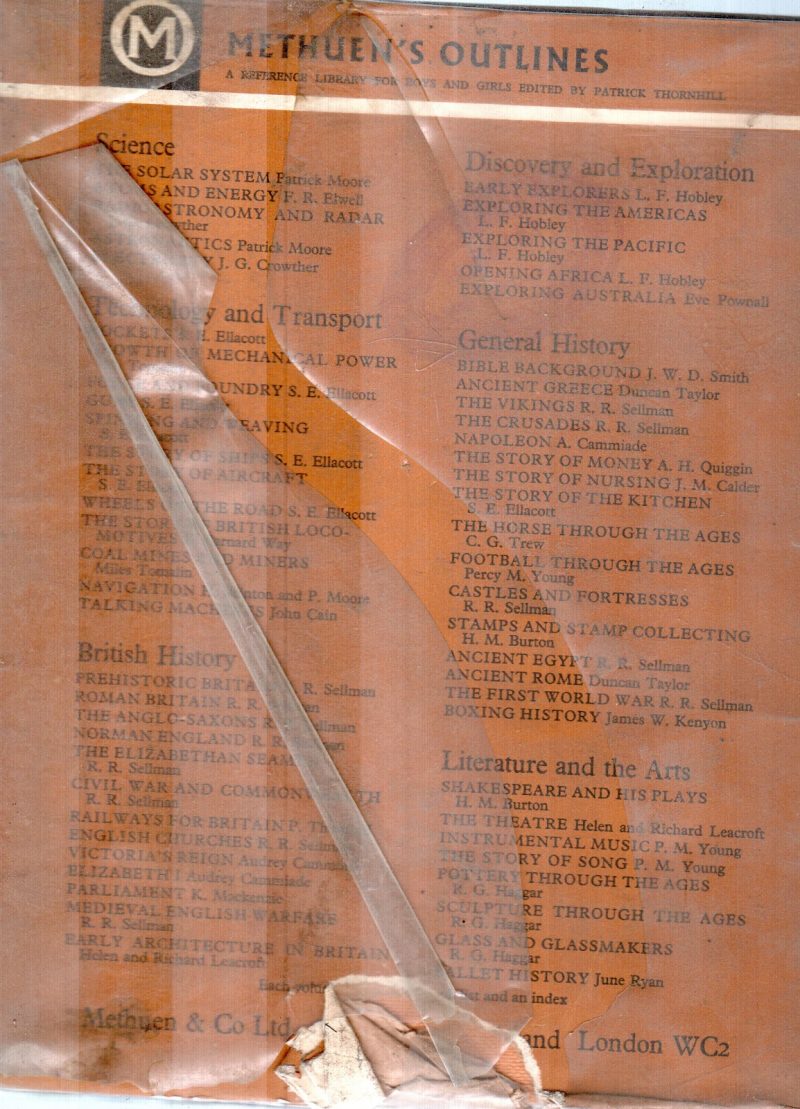 M
METHUEN'S OUTLINES
A REFERENCE LIBRARY FOR BOYS AND GIRLS EDITED BY PATRICK THORNHILL
Science
THE SOLAR SYSTEM Patrick Moore
AND ENERGY F. R. Elwell
ASTRONOMY AND RADAR
Patrick Moore
J. G. Crowther
Technology and Transport
ROCKETS S. E. Ellacott
GROWTH OF MECHANICAL POWER
FOUNDRY S. E. Ellacott
S. E.
SPINNING AND WEAVING
S. E. Ellacott
THE STORY OF SHIPS S. E. Ellacott
THE STORY OF AIRCRAFT
S. E.
WHEELS ON THE ROAD S. E. Ellacott
THE STORY BRITISH LOCO-
MOTIVES Barnard Way
COAL MINES AND MINERS
Miles Tomalin
NAVIGATION and P. Moore
TALKING MACHINES John Cain
British History
PREHISTORIC BRITAIN R. R. Sellman
ROMAN BRITAIN R. R.
THE ANGLO-SAXONS R. Sellman
NORMAN ENGLAND R. R. Sellman
THE ELIZABETHAN SEAMEN
R. R. Sellman
CIVIL WAR AND COMMONWEALTH
R. R. Sellman
RAILWAYS FOR BRITAIN P.
ENGLISH CHURCHES R. R. Sellman
VICTORIA'S REIGN Audrey Cammiade
ELIZABETH I Audrey Cammiade
PARLIAMENT K. Mackenzie
MEDIEVAL ENGLISH WARFARE
R. R. Sellman
EARLY ARCHITECTURE IN BRITAIN
Helen and Richard Leacroft
Discovery and Exploration
EARLY EXPLORERS L. F. Hobley
EXPLORING THE AMERICAS
L. F. Hobley
EXPLORING THE PACIFIC
L. F. Hobley
OPENING AFRICA L. F. Hobley
EXPLORING AUSTRALIA Eve Pownall
General History
BIBLE BACKGROUND J. W. D. Smith
ANCIENT GREECE Duncan Taylor
THE VIKINGS R. R. Sellman
THE CRUSADES R. R. Sellman
NAPOLEON A. Cammiade
THE STORY OF MONEY A. H. Quiggin
THE STORY OF NURSING J. M. Calder
THE STORY OF THE KITCHEN
S. E. Ellacott
THE HORSE THROUGH THE AGES
C. G. Trew
FOOTBALL THROUGH THE AGES
Percy M. Young
CASTLES AND FORTRESSES
R. R. Sellman
STAMPS AND STAMP COLLECTING
H. M. Burton
ANCIENT EGYPT R. R. Sellman
ANCIENT ROME Duncan Taylor
THE FIRST WORLD WAR R. R. Sellman
BOXING HISTORY James W. Kenyon
Literature and the Arts
SHAKESPEARE AND HIS PLAYS
H. M. Burton
THE THEATRE Helen and Richard Leacroft
INSTRUMENTAL MUSIC P. M. Young
THE STORY OF SONG P. M. Young
POTTERY THROUGH THE AGES
R. G. Haggar
SCULPTURE THROUGH THE AGES
R. G. Haggar
GLASS AND GLASSMAKERS
R. G. Haggar
BALLET HISTORY June Ryan
Each and an index
Methuen & Co Ltd and London WC2